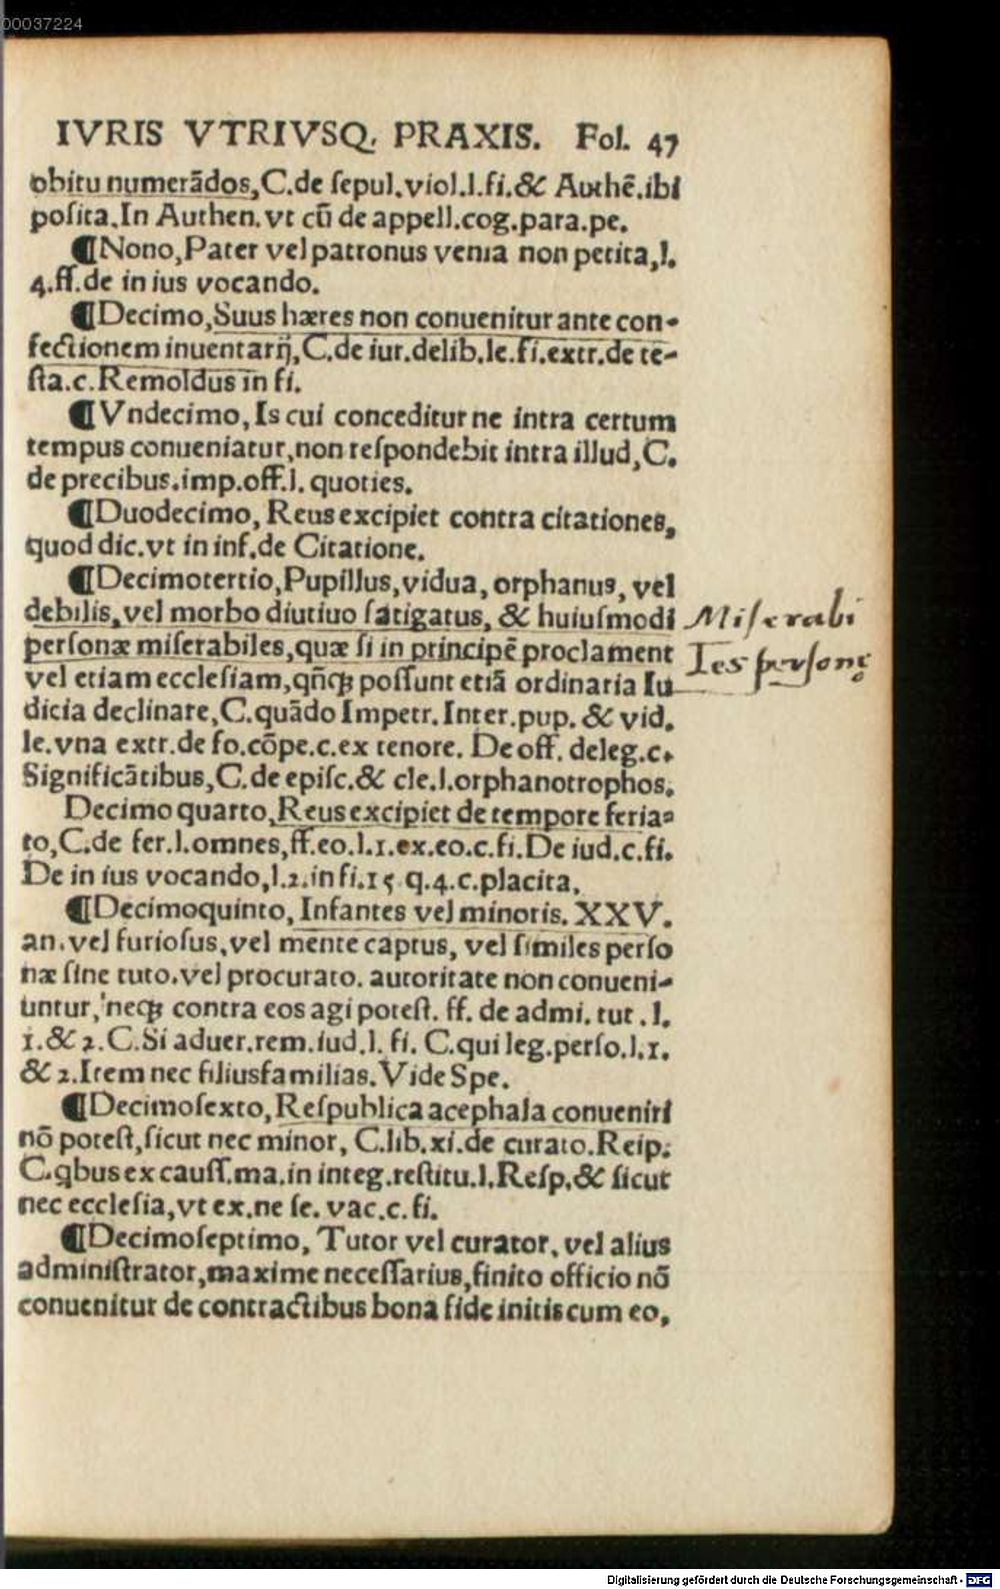 00037224
IVRIS VTRIVSQ. PRAXIS. Fol. 47
obitu numerādos, C.de sepul.viol.l.fi.& Authē.ibi
posita.In Authen.vt cū de appell.cog.para.pe.
¶Nono,Pater vel patronus venia non petita,l.
4.ff.de in ius vocando.
¶Decimo,Suus hæres non conuenitur ante con-
fectionem inuentarij,C.de iur.delib.le.fi.extr.de te-
sta.c.Remoldus in fi.
¶Vndecimo, Is cui conceditur ne intra certum
tempus conueniatur,non respondebit intra illud,C.
de precibus.imp.off.l. quoties.
¶Duodecimo, Reus excipiet contra citationes,
quod dic.vt in inf.de Citatione.
¶Decimotertio,Pupillus,vidua, orphanus, vel
debilis,vel morbo diutiuo fatigatus, & huiusmodi
personæ miserabiles,quæ si in principē proclament
vel etiam ecclesiam,qñqꝫ possunt etiā ordinaria Iu
dicia declinare,C.quādo Impetr.Inter.pup. & vid.
le.vna extr.de fo.cōpe.c.ex tenore. De off. deleg.c.
Significātibus,C.de episc.& cle.l.orphanotrophos.
Decimo quarto,Reus excipiet de tempore feria-
to,C.de fer.l.omnes,ff.eo.l.1.ex.eo.c.fi.De iud.c.fi.
De in ius vocando,l.2.in fi.15 q.4.c.placita,
¶Decimoquinto, Infantes vel minoris. XXV.
an.vel furiosus,vel mente captus, vel similes perso
næ sine tuto.vel procurato. autoritate non conueni-
untur, neqꝫ contra eos agi potest. ff. de admi. tut. l.
1.& 2.C.Si aduer.rem.iud.l. fi. C.qui leg.perso.l.1.
& 2.Item nec filiusfamilias.Vide Spe.
¶Decimosexto, Respublica acephala conueniri
nō potest,sicut nec minor, C.lib.xi.de curato.Reip.
C.qbus ex causs.ma.in integ.restitu.l.Resp.& sicut
nec ecclesia,vt ex.ne se. vac.c.fi.
¶Decimoseptimo, Tutor vel curator, vel alius
administrator,maxime necessarius,finito officio nō
conuenitur de contractibus bona fide initis cum eo,
Miserabi
les personę
Digitalisierung gefördert durch die Deutsche Forschungsgemeinschaft - DFG